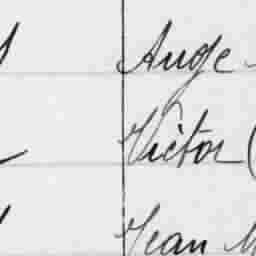 Ange
Victor (
Jean M